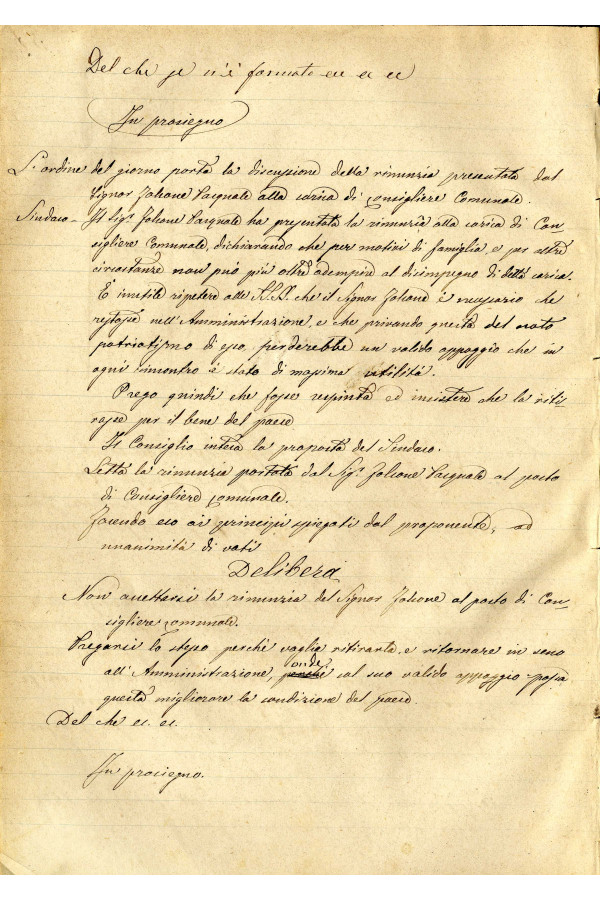 Del che se n'è formato ecc ec ec
In prosieguo
L'ordine del giorno porta la discussione della rinunzia presentata dal
Signor Falcone Pasquale alla carica di Consigliere Comunale.
Sindaco - Il Sigr Falcone Pasquale ha presentata la rinunzia alla carica di Con-
sigliere Comunale, dichiarando che per motivi di famiglia, e per altre
circostanze non può più oltre adempire al disimpegno di detta carica.
È inutile ripetere alle S.S. che il Signor Falcone è necessario che
restasse nell'Amministrazione, e che privando questa del nato
patriatismo di esso, perderebbe un valido appoggio che in
ogni rincontro è stato di massima utilità.
Prego quindi che fosse respinta ed insistere che la riti-
rasse per il bene del paese
Il Consiglio intesa la proposta del Sindaco.
Letta la rinunzia portata dal Sigr Falcone Pasquale al posto
di Consigliere comunale.
Facendo eco ai principii spiegati dal proponente, ad
unanimità di voti
Delibera
Non accettarsi la rinunzia del Signor Falcone al posto di Con-
sigliere comunale.
Pregarsi lo stesso perchè voglia ritirarla, e ritornare in seno
all'Amministrazione, perchè onde col suo valido appoggio possa
questa migliorare la condizione del paese.
Del che ec. ec.
In prosieguo.